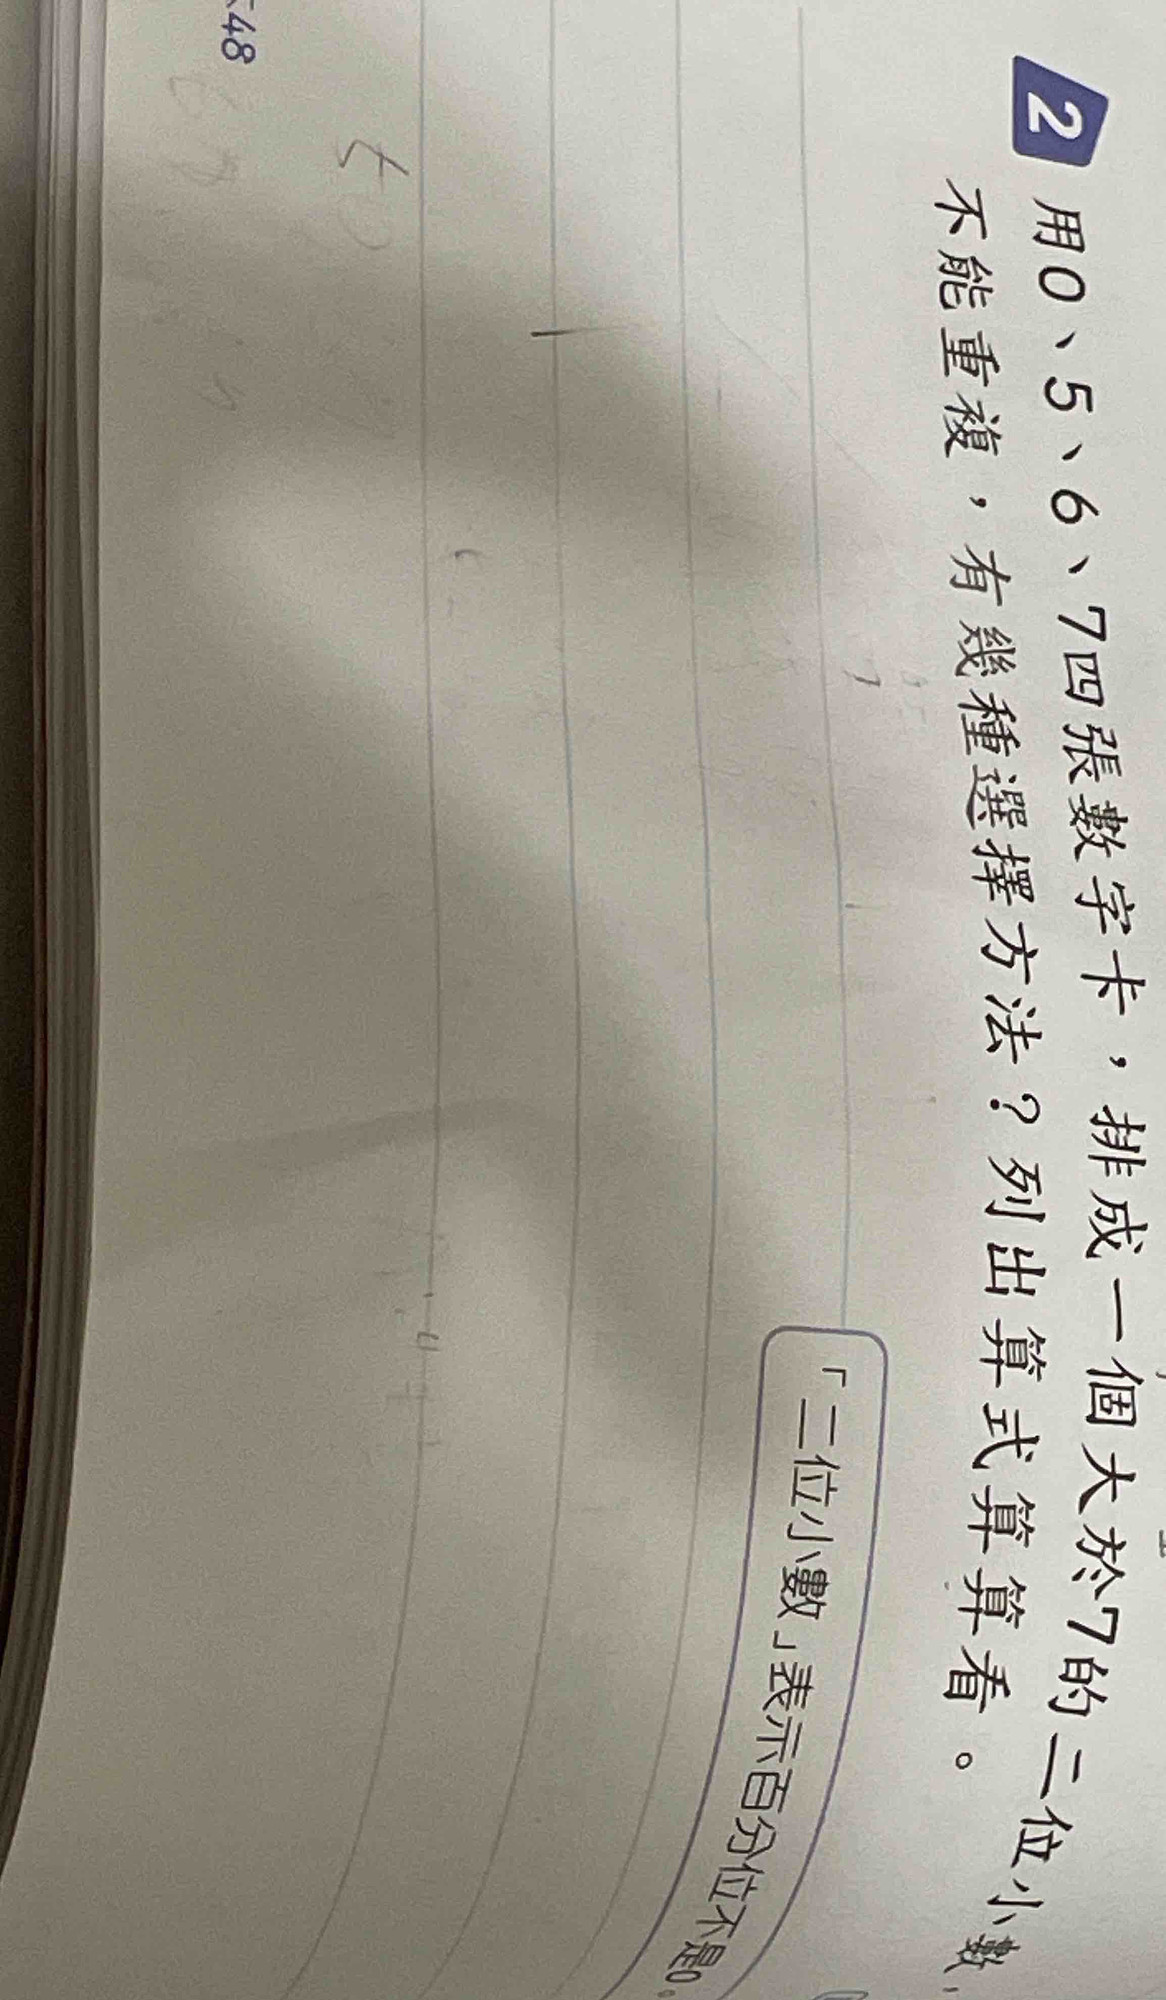 2 用0、5、6、7四張數字卡，排成一個大於7的二位小數，
不能重複，有幾種選擇方法？列出算式算算看。
「二位小數」表示百分位不是0。
48